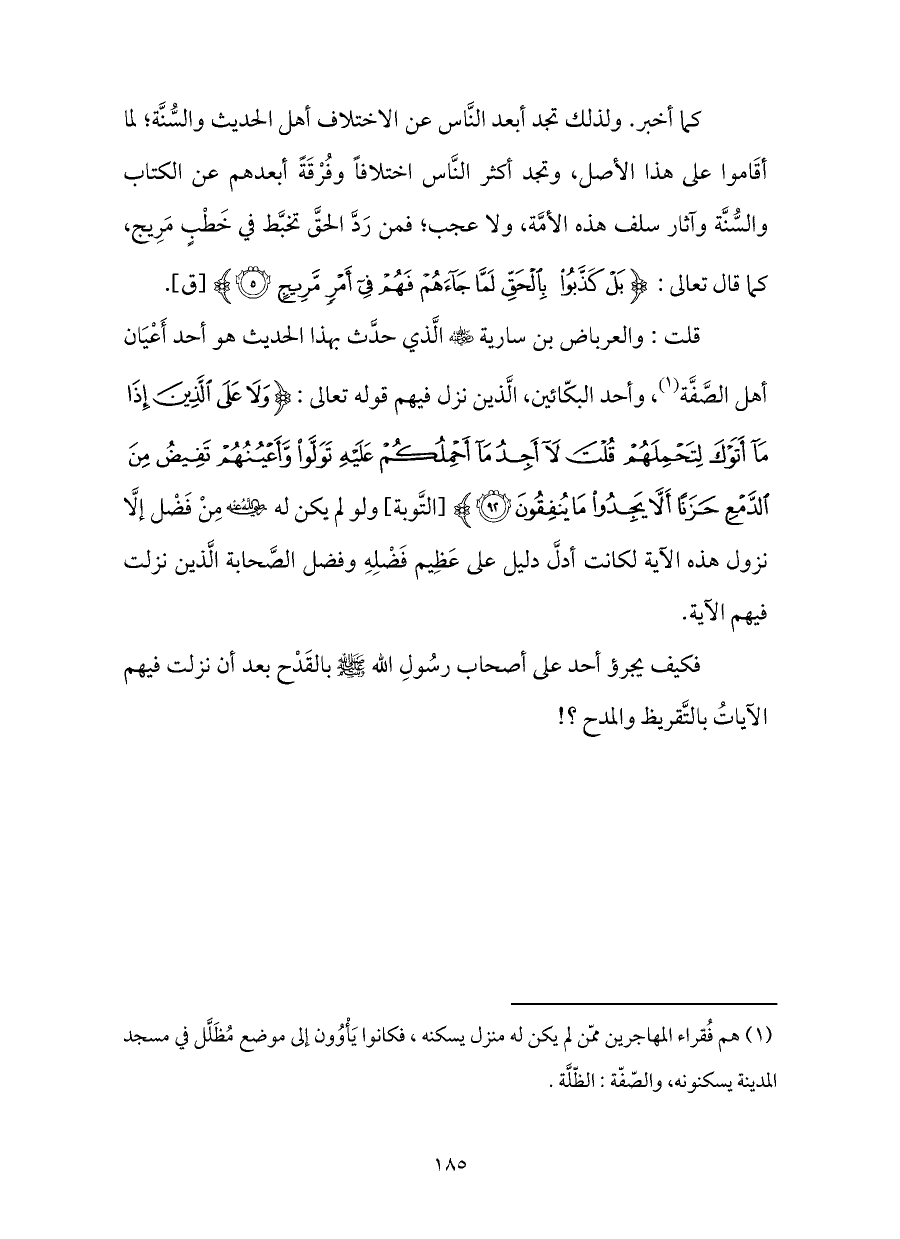 كما أخبر. ولذلك تجد أبعد النَّاس عن الاختلاف أهل الحديث والسُّنَّة؛ لما
أقَاموا على هذا الأصل، وتجد أكثر النَّاس اختلافاً وفُرْقَةً أبعدهم عن الكتاب
والسُّنَّة وآثار سلف هذه الأمَّة، ولا عجب؛ فمن رَدَّ الحقَّ تخبَّط في خَطْبٍ مَرِيج،
كما قال تعالى : ﴿ بَلْ كَذَّبُوا۟ بِٱلْحَقِّ لَمَّا جَآءَهُمْ فَهُمْ فِىٓ أَمْرٍ مَّرِيجٍ ٥ ﴾ [ق].
قلت : والعرباض بن سارية ﵁ الَّذي حدَّث بهذا الحديث هو أحد أَعْيَان
أهل الصَّفَّة(١)، وأحد البكّائين، الَّذين نزل فيهم قوله تعالى : ﴿ وَلَا عَلَى ٱلَّذِينَ إِذَا
مَآ أَتَوْكَ لِتَحْمِلَهُمْ قُلْتَ لَآ أَجِدُ مَآ أَحْمِلُكُمْ عَلَيْهِ تَوَلَّوا۟ وَّأَعْيُنُهُمْ تَفِيضُ مِنَ
ٱلدَّمْعِ حَزَنًا أَلَّا يَجِدُوا۟ مَا يُنفِقُونَ ٩٢ ﴾ [التَّوبة] ولو لم يكن له ﵁ مِنْ فَضْل إلَّا
نزول هذه الآية لكانت أدلَّ دليل على عَظِيم فَضْلِهِ وفضل الصَّحابة الَّذين نزلت
فيهم الآية.
فكيف يجرؤ أحد على أصحاب رسُولِ الله ﷺ بالقَدْح بعد أن نزلت فيهم
الآياتُ بالتَّقريظ والمدح ؟!
(١) هم فُقراء المهاجرين ممّن لم يكن له منزل يسكنه ، فكانوا يَأْوُون إلى موضع مُظَلَّل في مسجد
المدينة يسكنونه، والصّفّة : الظّلَّة .
١٨٥